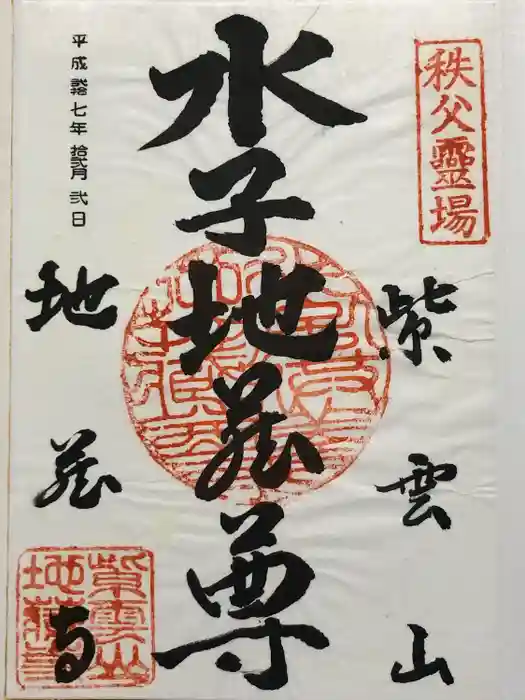 秩父靈場
紫雲山
水子地蔵尊
地蔵寺
平成弐拾七年 拾弐月 弐日
紫雲山地蔵寺